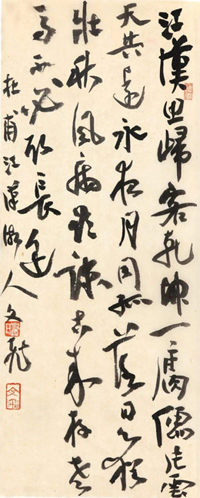 江漢思歸客乾坤一腐儒片雲
天共遠永夜月同孤落日心猶
壯秋風病欲蘇古來存老
馬不必取長途
杜甫江漢